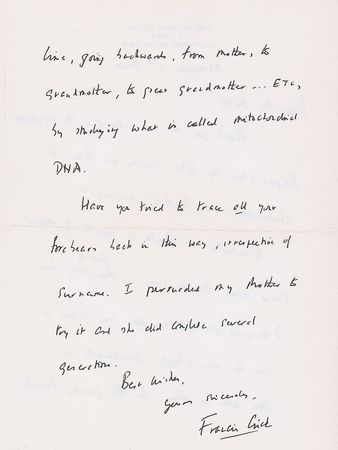 line, going backwards, from mother, to
grandmother, to great grandmother ... ETC,
by studying what is called mitochondrial
DNA.
Have you tried to trace all your
forebears back in this way, irrespective of
surname. I persuaded my Mother to
try it and she did complete several
generations.
Best wishes,
Yours sincerely,
Francis Crick